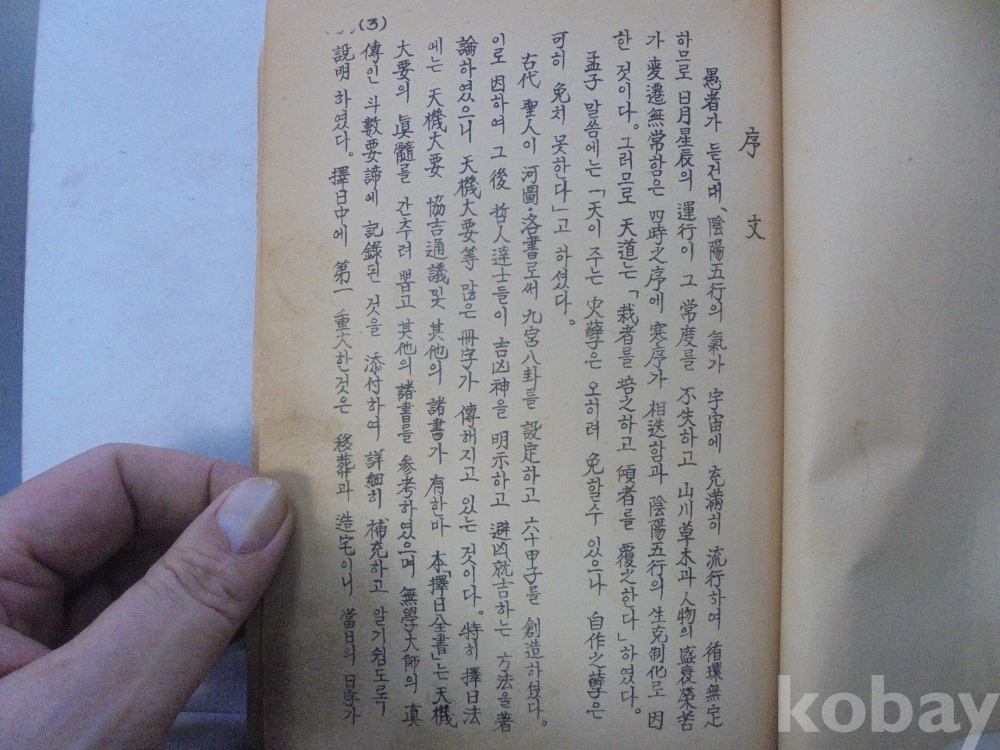 序文
愚者가 듣건대, 陰陽五行의 氣가 宇宙에 充滿히 流行하여 循環無定
하므로 日月星辰의 運行이 그 常度를 不失하고 山川草木과 人物의 盛衰榮苦
가 変遷無常함은 四時之序에 寒序가 相迭함과 陰陽五行의 生克制化로 因
한 것이다. 그러므로 天道는 「栽者를 培之하고 傾者를 覆之한다」하였다.
孟子 말씀에는 「天이 주는 災孽은 오히려 免할수 있으나 自作之孽은
可히 免치 못한다」고 하셨다.
古代 聖人이 河圖·洛書로써 九宮八卦를 設定하고 六十甲子를 創造하셨다.
이로 因하여 그 後 哲人達士들이 吉凶神을 明示하고 避凶就吉하는 方法을 著
論하였으니 天機大要等 많은 冊字가 傳해지고 있는 것이다. 特히 擇日法
에는 天機大要 協吉通議및 其他의 諸書가 有한마 本「擇日全書」는 天機
大要의 眞髓를 간추려 뽑고 其他의 諸書를 參考하였으며 無學大師의 眞
傳인 斗數要諦에 記錄된 것을 添付하여 詳細히 補充하고 알기쉽도록
說明하였다. 擇日中에 第一 重大한것은 移葬과 造宅이니 當日의 日字가
(3)
kobay